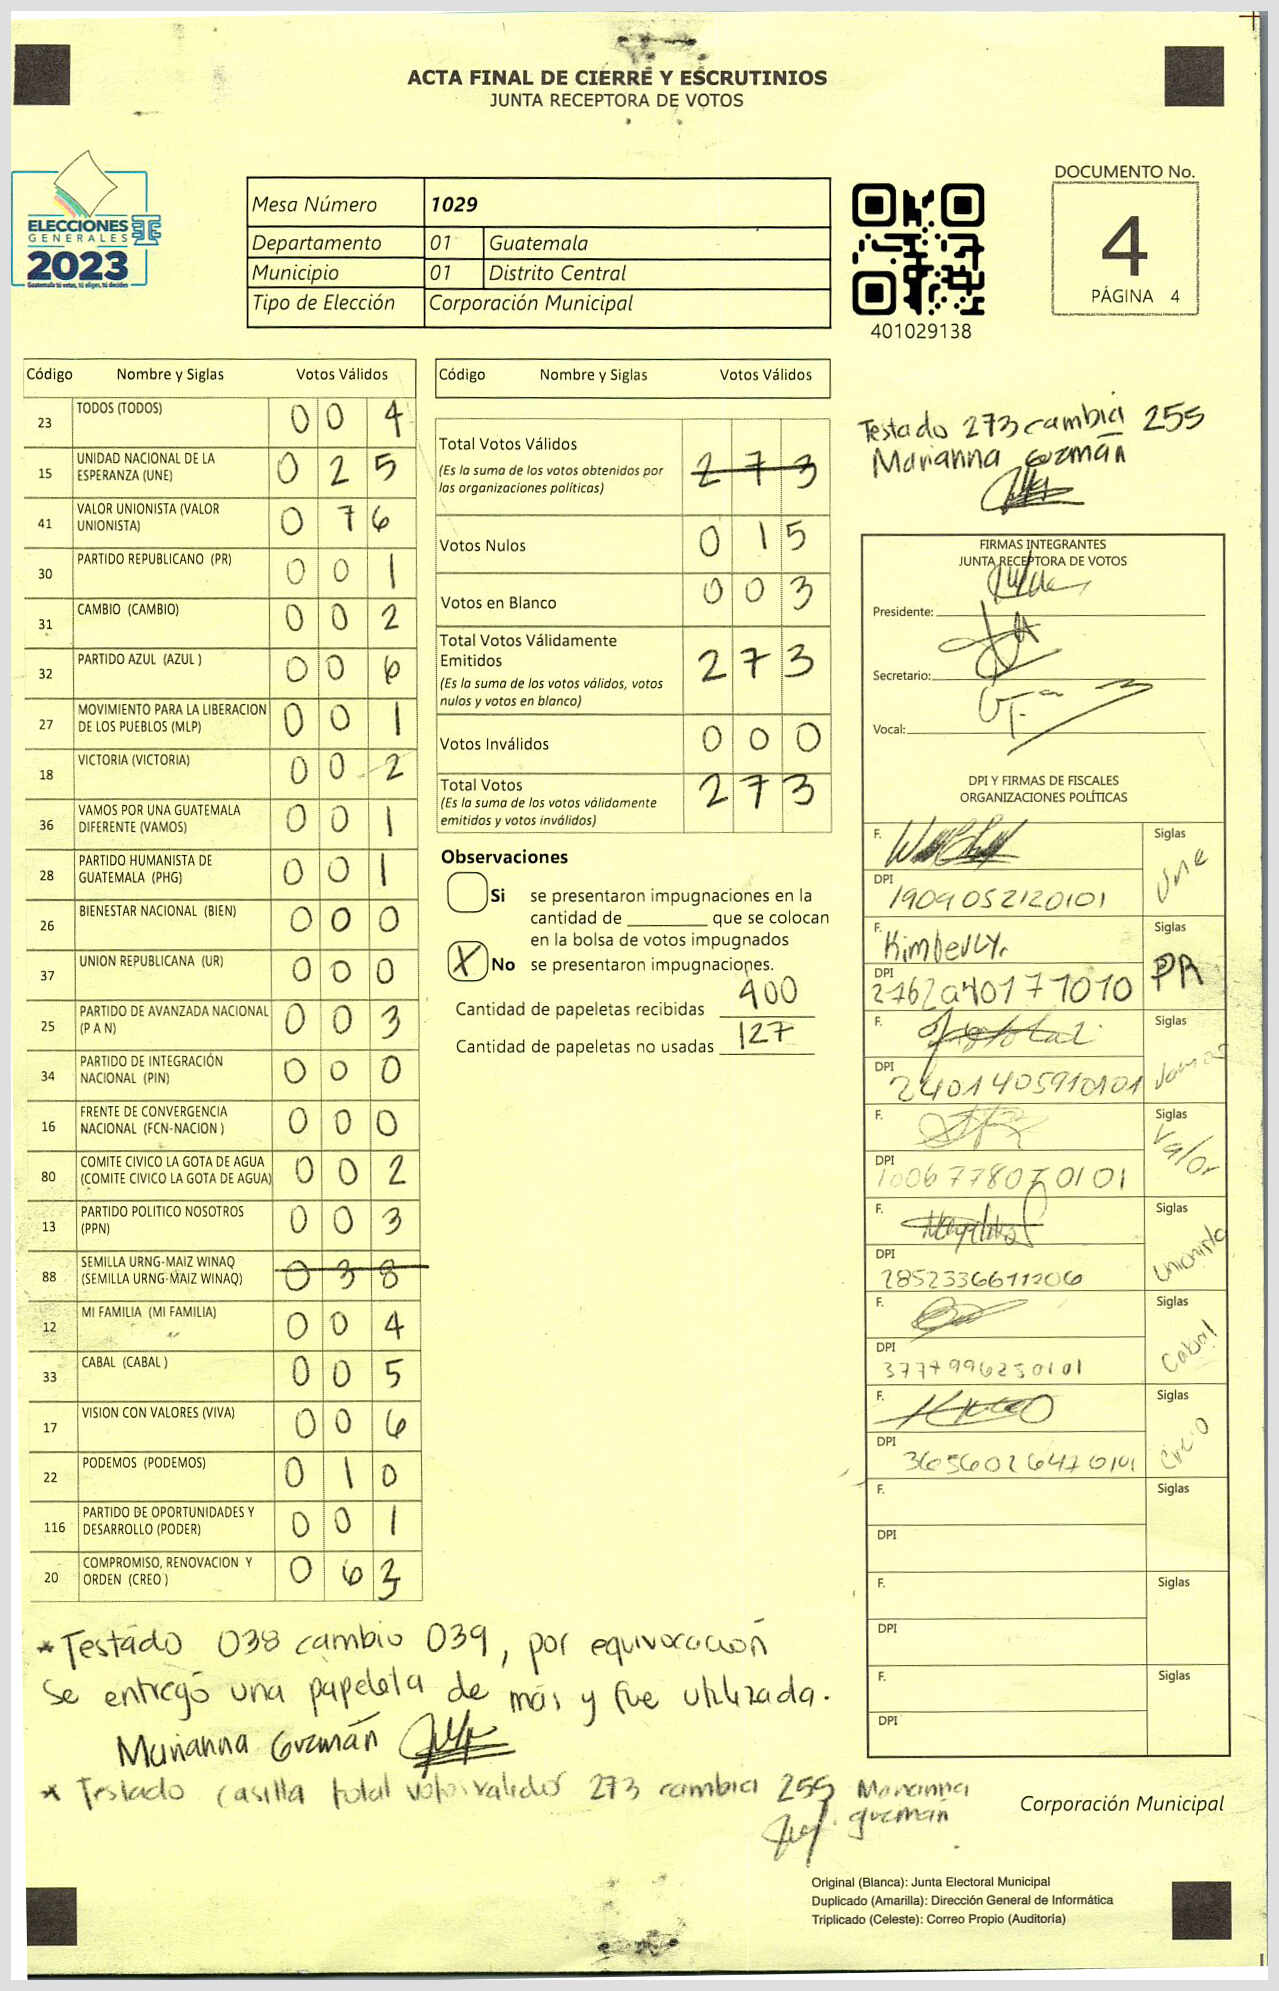 ACTA FINAL DE CIERRE Y ESCRUTINIOS
JUNTA RECEPTORA DE VOTOS
ELECCIONES
GENERALES
2023
Guatemala tú votas, tú eliges, tú decides
Mesa Número 1029
Departamento 01 Guatemala
Municipio 01 Distrito Central
Tipo de Elección Corporación Municipal
401029138
DOCUMENTO No.
4
PÁGINA 4
Código Nombre y Siglas Votos Válidos
23 TODOS (TODOS) 0 0 4
15 UNIDAD NACIONAL DE LA
ESPERANZA (UNE) 0 2 5
41 VALOR UNIONISTA (VALOR
UNIONISTA) 0 7 6
30 PARTIDO REPUBLICANO (PR) 0 0 1
31 CAMBIO (CAMBIO) 0 0 2
32 PARTIDO AZUL (AZUL ) 0 0 6
27 MOVIMIENTO PARA LA LIBERACION
DE LOS PUEBLOS (MLP) 0 0 1
18 VICTORIA (VICTORIA) 0 0 2
36 VAMOS POR UNA GUATEMALA
DIFERENTE (VAMOS) 0 0 1
28 PARTIDO HUMANISTA DE
GUATEMALA (PHG) 0 0 1
26 BIENESTAR NACIONAL (BIEN) 0 0 0
37 UNION REPUBLICANA (UR) 0 0 0
25 PARTIDO DE AVANZADA NACIONAL
(P A N) 0 0 3
34 PARTIDO DE INTEGRACIÓN
NACIONAL (PIN) 0 0 0
16 FRENTE DE CONVERGENCIA
NACIONAL (FCN-NACION ) 0 0 0
80 COMITE CIVICO LA GOTA DE AGUA
(COMITE CIVICO LA GOTA DE AGUA) 0 0 2
13 PARTIDO POLITICO NOSOTROS
(PPN) 0 0 3
88 SEMILLA URNG-MAIZ WINAQ
(SEMILLA URNG-MAIZ WINAQ) 0 3 8
12 MI FAMILIA (MI FAMILIA) 0 0 4
33 CABAL (CABAL ) 0 0 5
17 VISION CON VALORES (VIVA) 0 0 6
22 PODEMOS (PODEMOS) 0 1 0
116 PARTIDO DE OPORTUNIDADES Y
DESARROLLO (PODER) 0 0 1
20 COMPROMISO, RENOVACION Y
ORDEN (CREO ) 0 6 3
Código Nombre y Siglas Votos Válidos
Total Votos Válidos
(Es la suma de los votos obtenidos por
las organizaciones políticas) 2 7 3
Votos Nulos 0 1 5
Votos en Blanco 0 0 3
Total Votos Válidamente
Emitidos 2 7 3
(Es la suma de los votos válidos, votos
nulos y votos en blanco)
Votos Inválidos 0 0 0
Total Votos 2 7 3
(Es la suma de los votos válidamente
emitidos y votos inválidos)
Observaciones
Si se presentaron impugnaciones en la
cantidad de ________ que se colocan
en la bolsa de votos impugnados
X No se presentaron impugnaciones.
Cantidad de papeletas recibidas 400
Cantidad de papeletas no usadas 127
Testado 273 cambia 255
Marianna Guzmán
FIRMAS INTEGRANTES
JUNTA RECEPTORA DE VOTOS
Presidente:
Secretario:
Vocal:
DPI Y FIRMAS DE FISCALES
ORGANIZACIONES POLÍTICAS
F. Siglas
DPI 1909052120101 Une
F. Kimberly. Siglas
DPI 2762940171010 PR
F. Siglas
DPI 2401405910101 Vamos
F. Siglas
DPI 1006778070101 Valor
F. Siglas
DPI 2852336611206 Unionista
F. Siglas
DPI 3777996250101 Cabal
F. Siglas
DPI 3656026470101 Creo
F. Siglas
DPI
F. Siglas
DPI
F. Siglas
DPI
* Testado 038 cambio 039, por equivocación
Se entregó una papeleta de más y fue utilizada.
Marianna Guzmán
* Testado casilla total votos validos 273 cambia 255 Marianna
guzmán
Corporación Municipal
Original (Blanca): Junta Electoral Municipal
Duplicado (Amarilla): Dirección General de Informática
Triplicado (Celeste): Correo Propio (Auditoría)